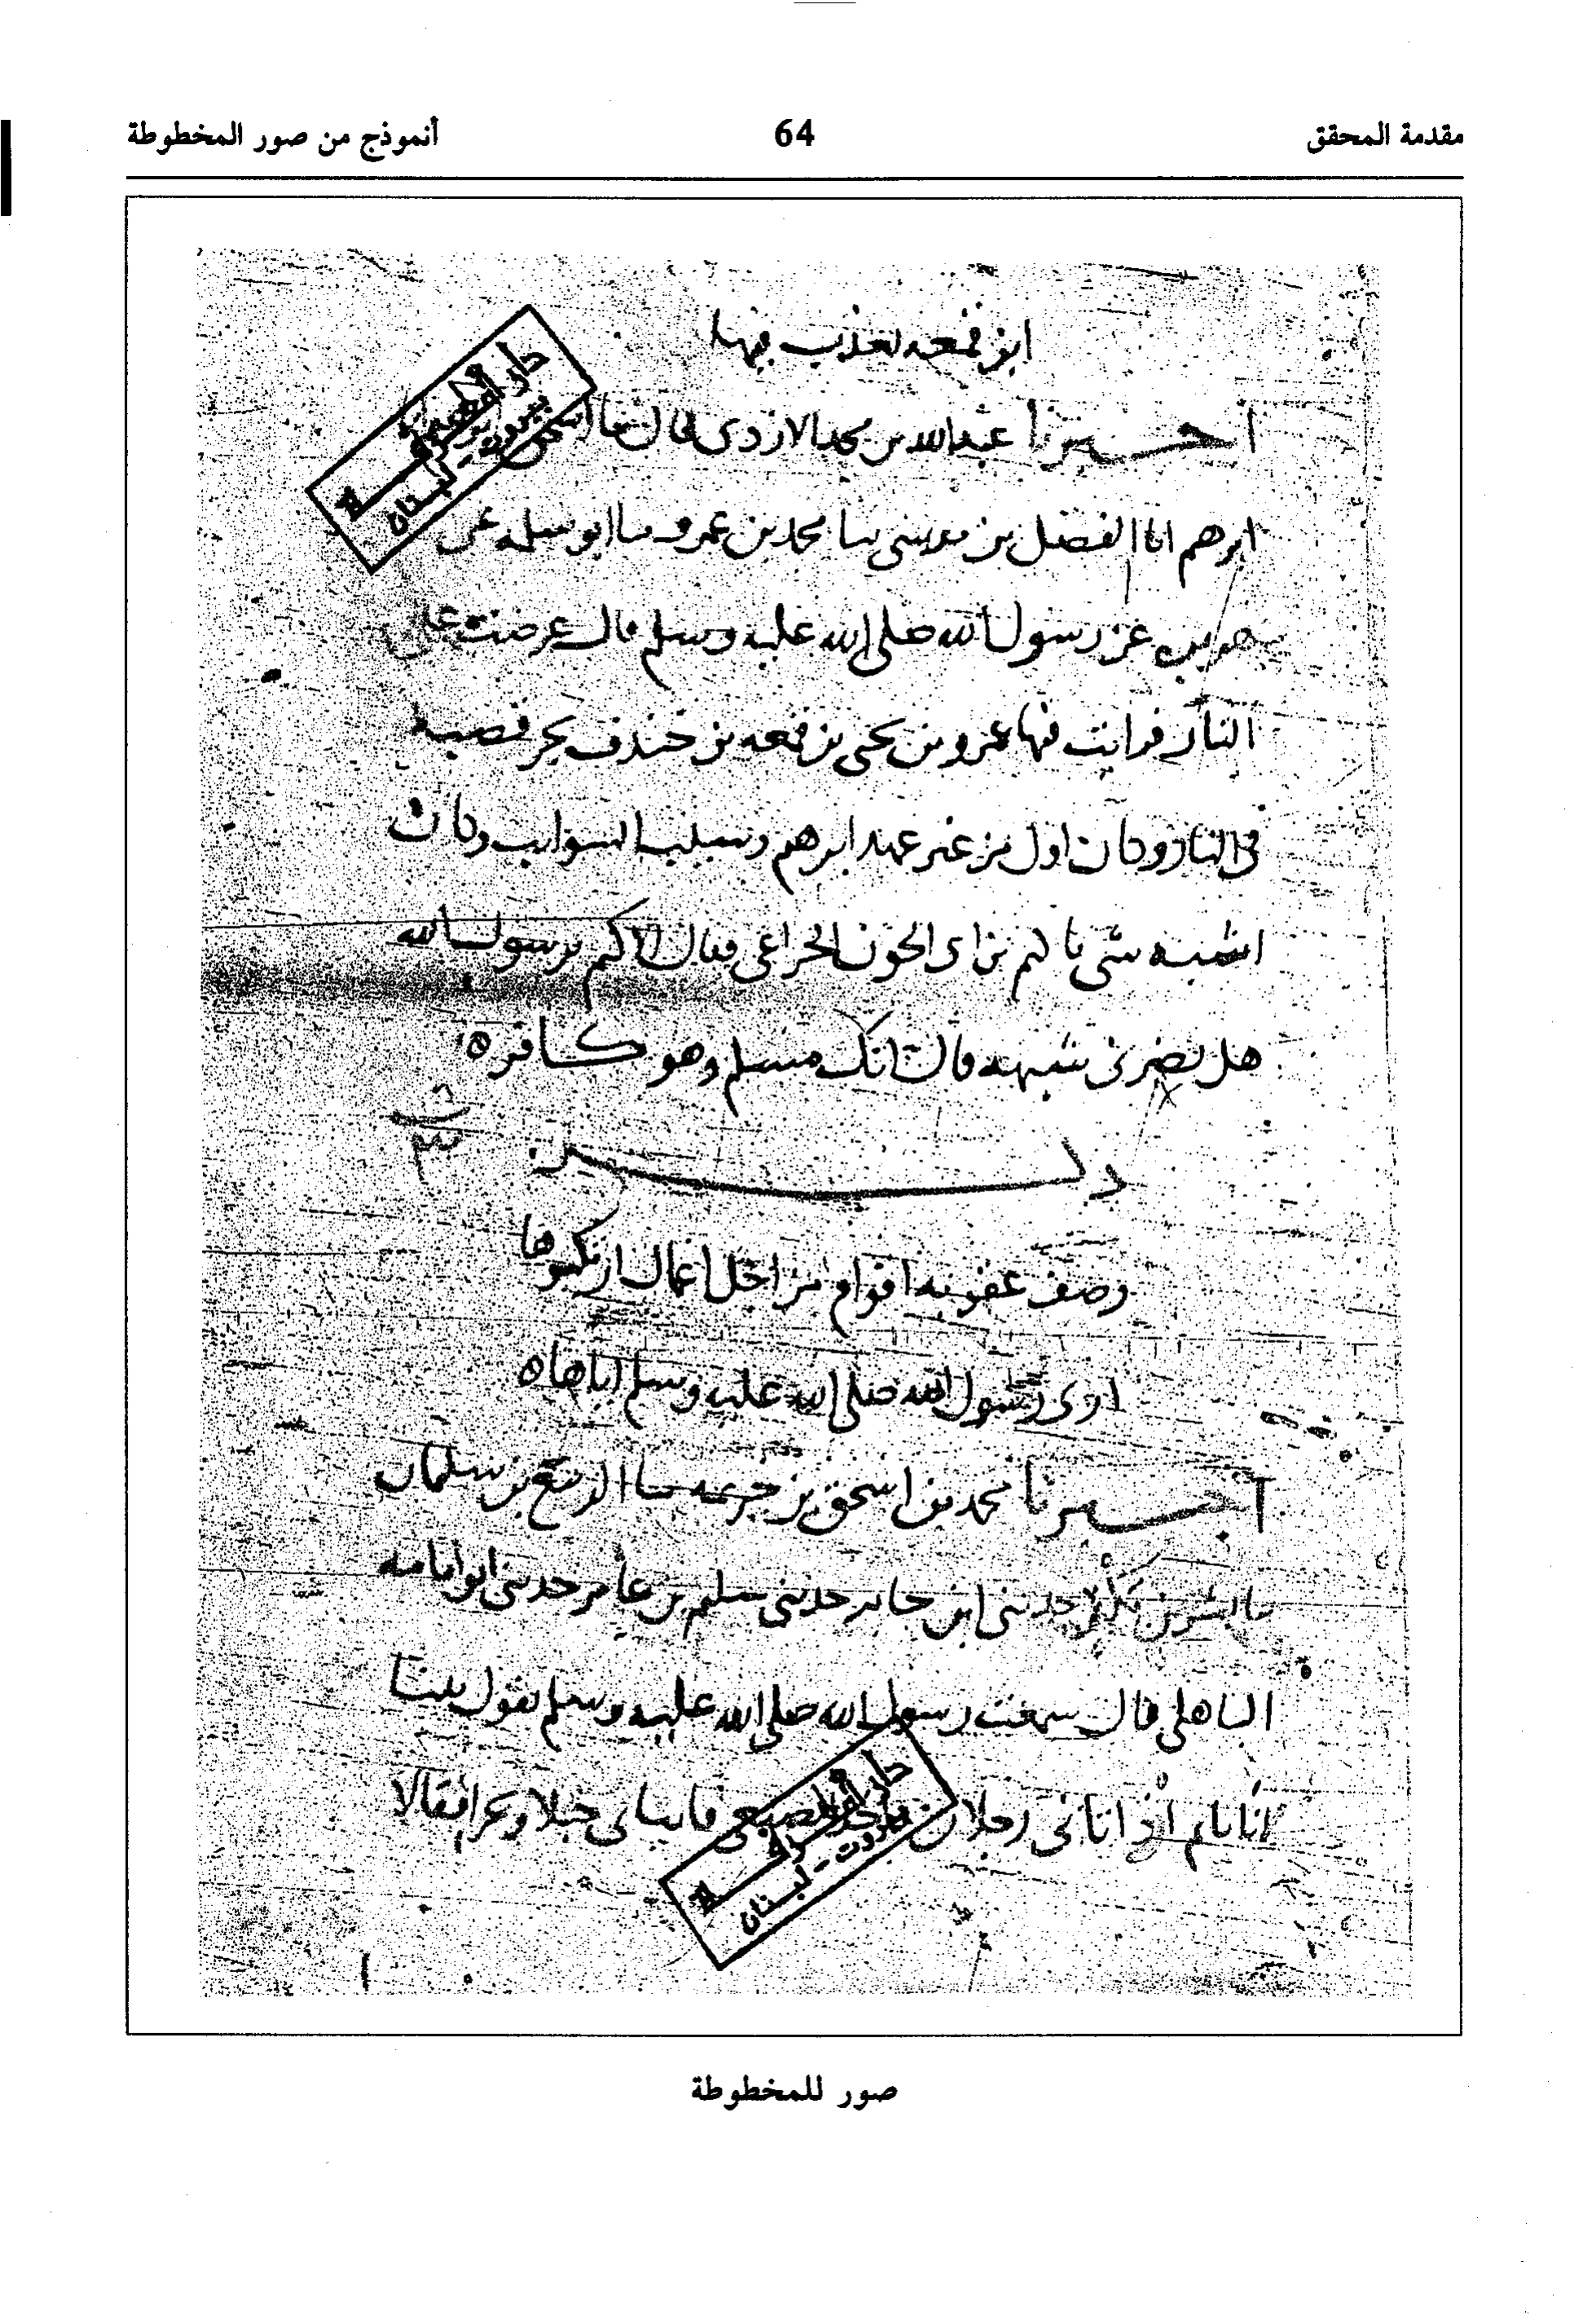 مقدمة المحقق 64 أنموذج من صور المخطوطة
ابن قمعه يعذب فيها
اخبرنا عبد الله بن محمد الازدى قال ثنا اسحق بن
ابرهم انا الفضل بن موسى ثنا محمد بن عمرو ثنا ابو سلمه عن
هريره عن رسول الله صلى الله عليه وسلم قال عرضت على
النار فرايت فيها عمرو بن لحى بن قمعه بن خندف يجر قصبه
فى النار وكان اول من غير عهد ابرهم وسيب السوايب وكان
اشبه شى باكثم بن ابى الجون الخزاعى فقال الاكثم يرسول الله
هل يضرنى شبهه قال انك مسلم وهو كافر ه
ذكر
وصف عقوبه اقوام من اجل اعمال ارتكبوها
ارى رسول الله صلى الله عليه وسلم اياها ه
اخبرنا محمد بن اسحق بن خزيمه ثنا الربيع بن سليمان
ثنا بشر بن بكر حدثنى ابن جابر حدثنى سليم بن عامر حدثنى ابو امامه
الباهلى قال سمعت رسول الله صلى الله عليه وسلم يقول بينا
انا نايم اذ اتانى رجلان فاخذا بضبعى فاتيا بى جبلا وعرا فقالا
دار المعرفة
بيروت - لبنان
دار المعرفة
بيروت - لبنان
صور للمخطوطة